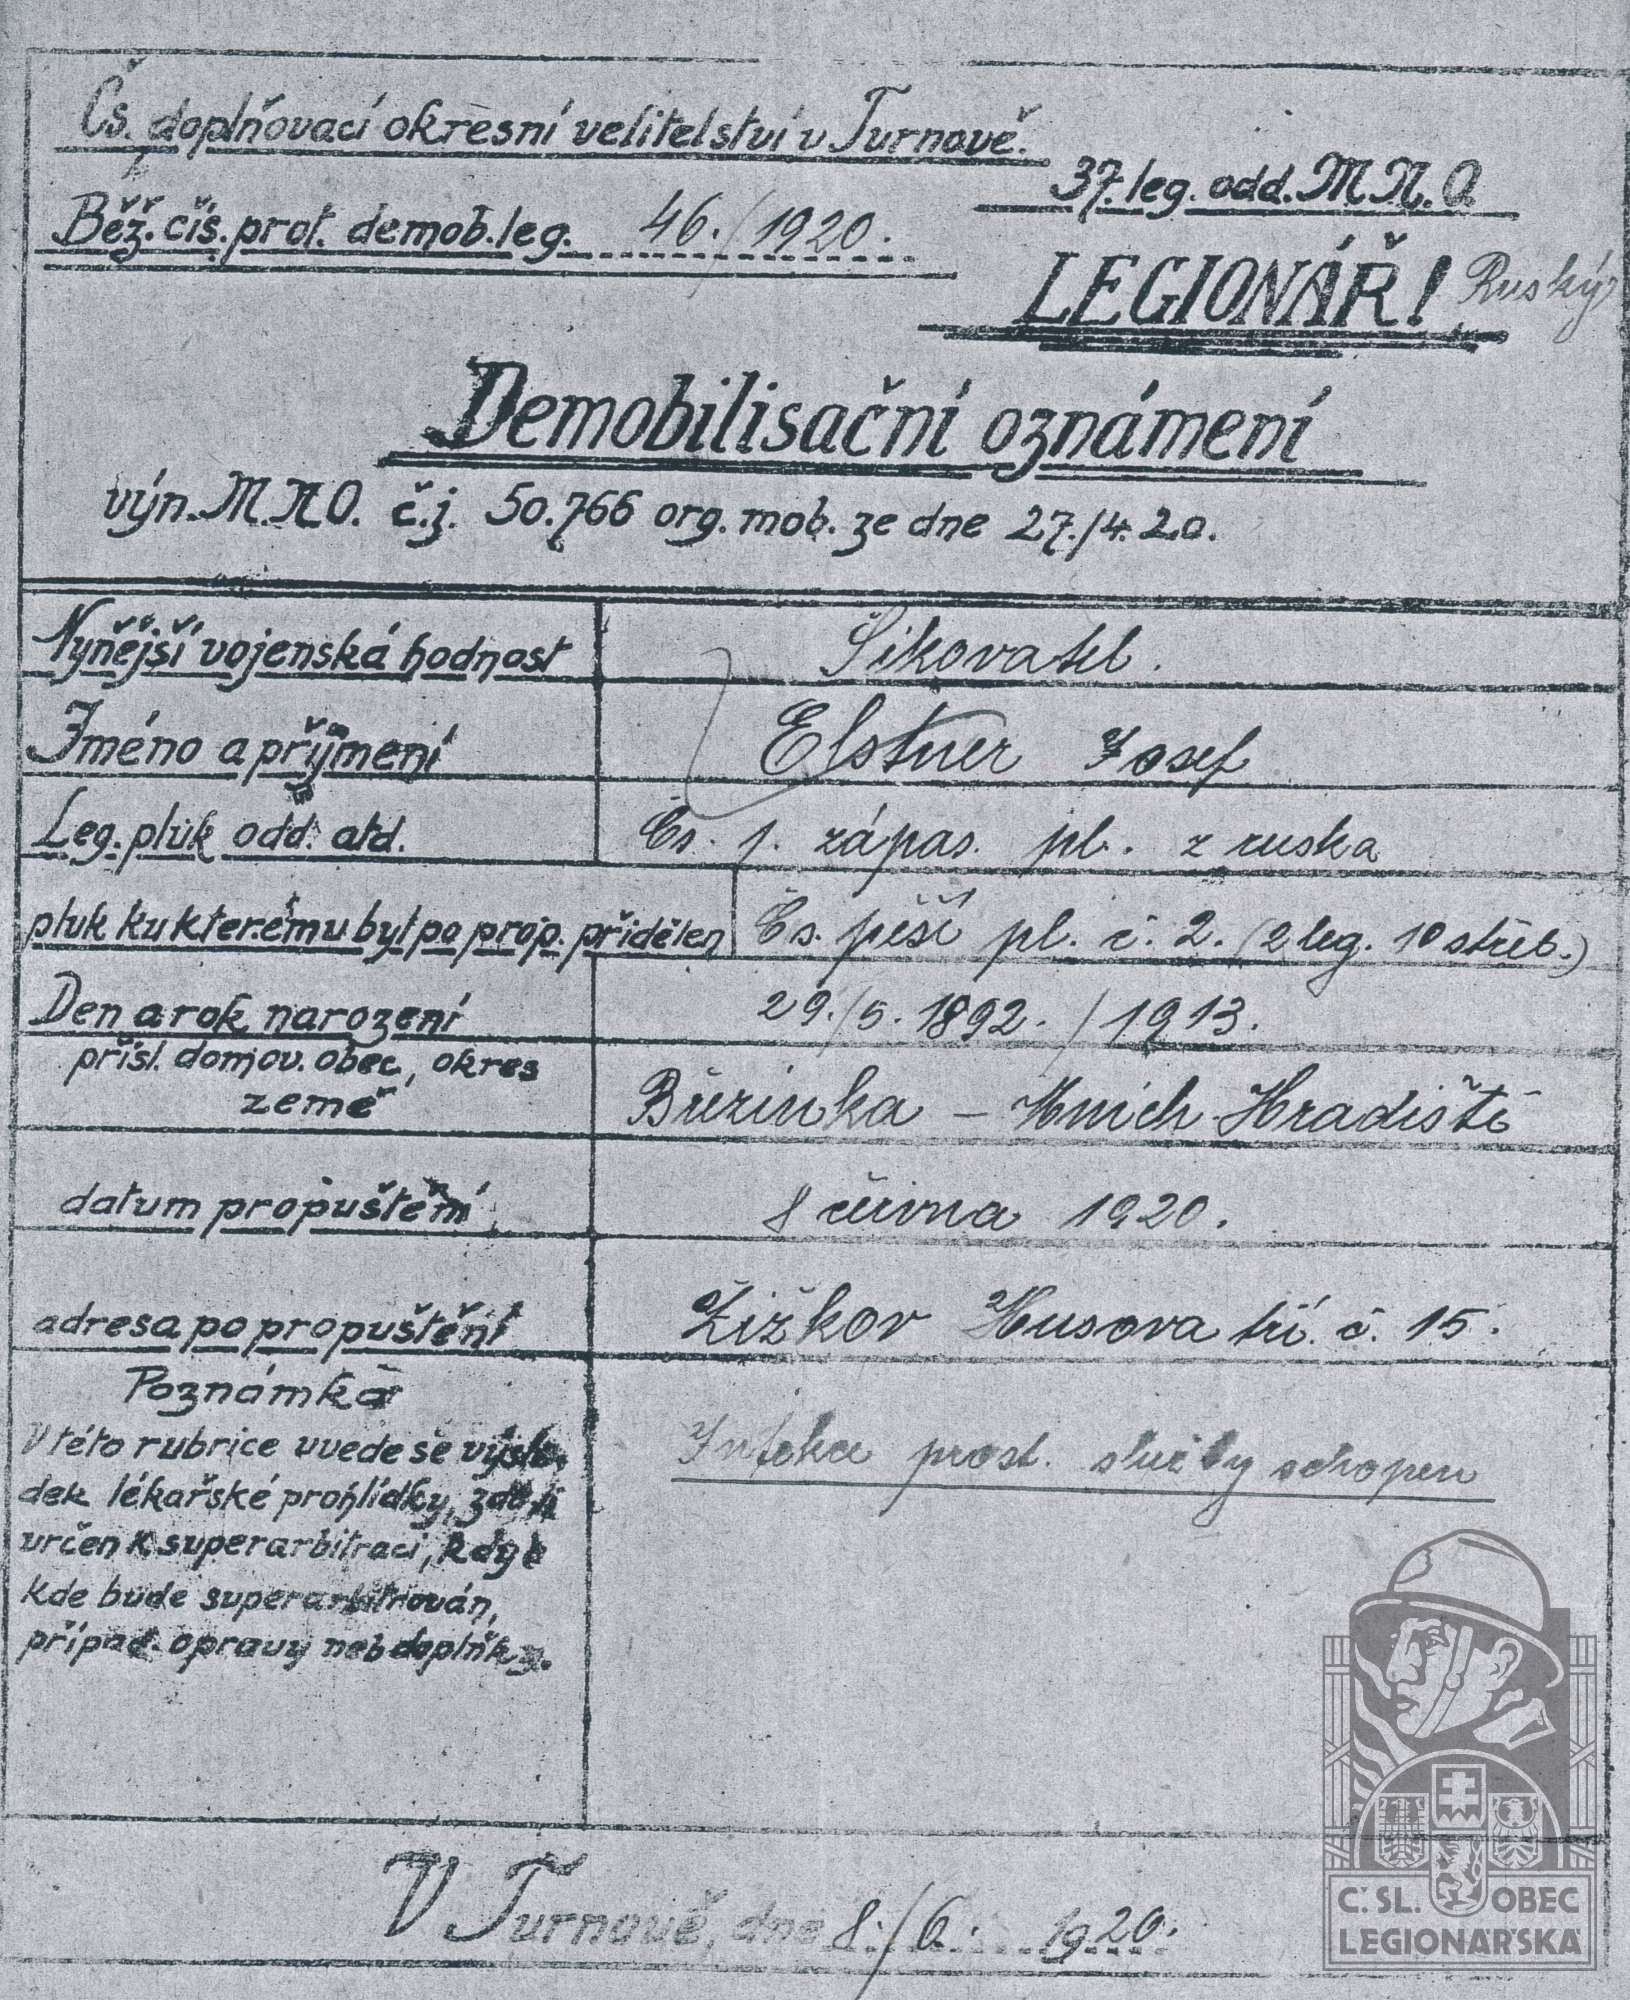 Čs. doplňovací okresní velitelství v Turnově.
37. leg. odd. M.N.O.
Běž. čís. prot. demob. leg. 46./1920.
LEGIONÁŘ! Ruský
Demobilisační oznámení
výn. M.N.O. č.j. 50.766 org. mob. ze dne 27./4. 20.
Nynější vojenská hodnost Šikovatel.
Jméno a příjmení Elstner Josef
Leg. pluk odd. atd. Čs. 1. zápas. pl. z ruska
pluk ku kterému byl po prop. přidělen Čs. pěší pl. č. 2. (2 leg. 10 střeb.)
Den a rok narození 29./5. 1892. / 1913.
přísl. domov. obec, okres
země Březinka – Mnich. Hradiště
datum propuštění 8 června 1920.
adresa po propuštění Žižkov Husova tří. č. 15.
Poznámka
V této rubrice uvede se výsle-
dek lékařské prohlídky, zda k
určen k superarbitraci, kdy a
kde bude superarbitrován,
případ. opravy neb doplňky.
prost. služby schopen
V Turnově, dne 8./6. 1920.
Č. SL. OBEC
LEGIONÁŘSKÁ